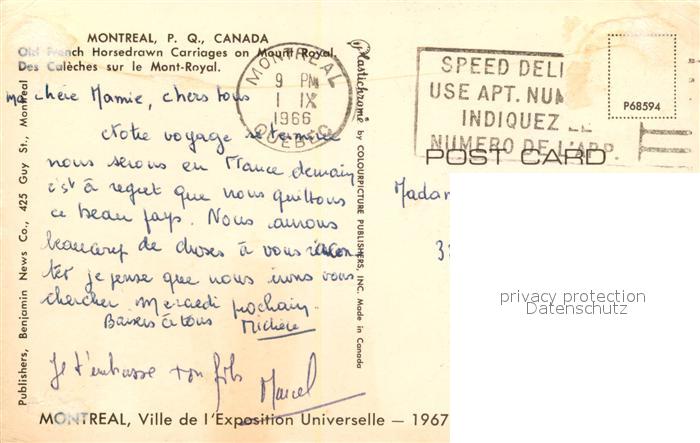 MONTREAL, P. Q., CANADA
Old French Horsedrawn Carriages on Mount Royal.
Des Calèches sur le Mont-Royal.
ma chère Mamie, chers tous
Notre voyage se termine
nous serons en France demain
c'est à regret que nous quittons
ce beau pays. Nous aurons
beaucoup de choses à vous racon
ter je pense que nous irons vous
chercher Mercredi prochain
Baisers à tous Michèle
Je t'embrasse ton fils
Marcel
MONTREAL, Ville de l'Exposition Universelle — 1967
Publishers, Benjamin News Co., 425 Guy St., Montreal
Plastichrome® by COLOURPICTURE PUBLISHERS, INC. Made in Canada
MONTREAL
9 PM
1 IX
1966
QUÉBEC
SPEED DELI
USE APT. NUM
INDIQUEZ LE
NUMERO DE L'APP
P68594
POST CARD
Madam
3
privacy protection
Datenschutz